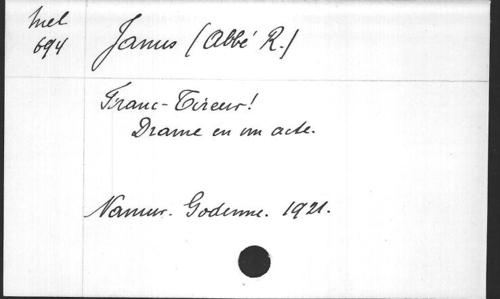 Mel
694
Janus (Abbé R.)
Franc-Tireur!
Drame en un acte.
Namur. Godenne. 1921.